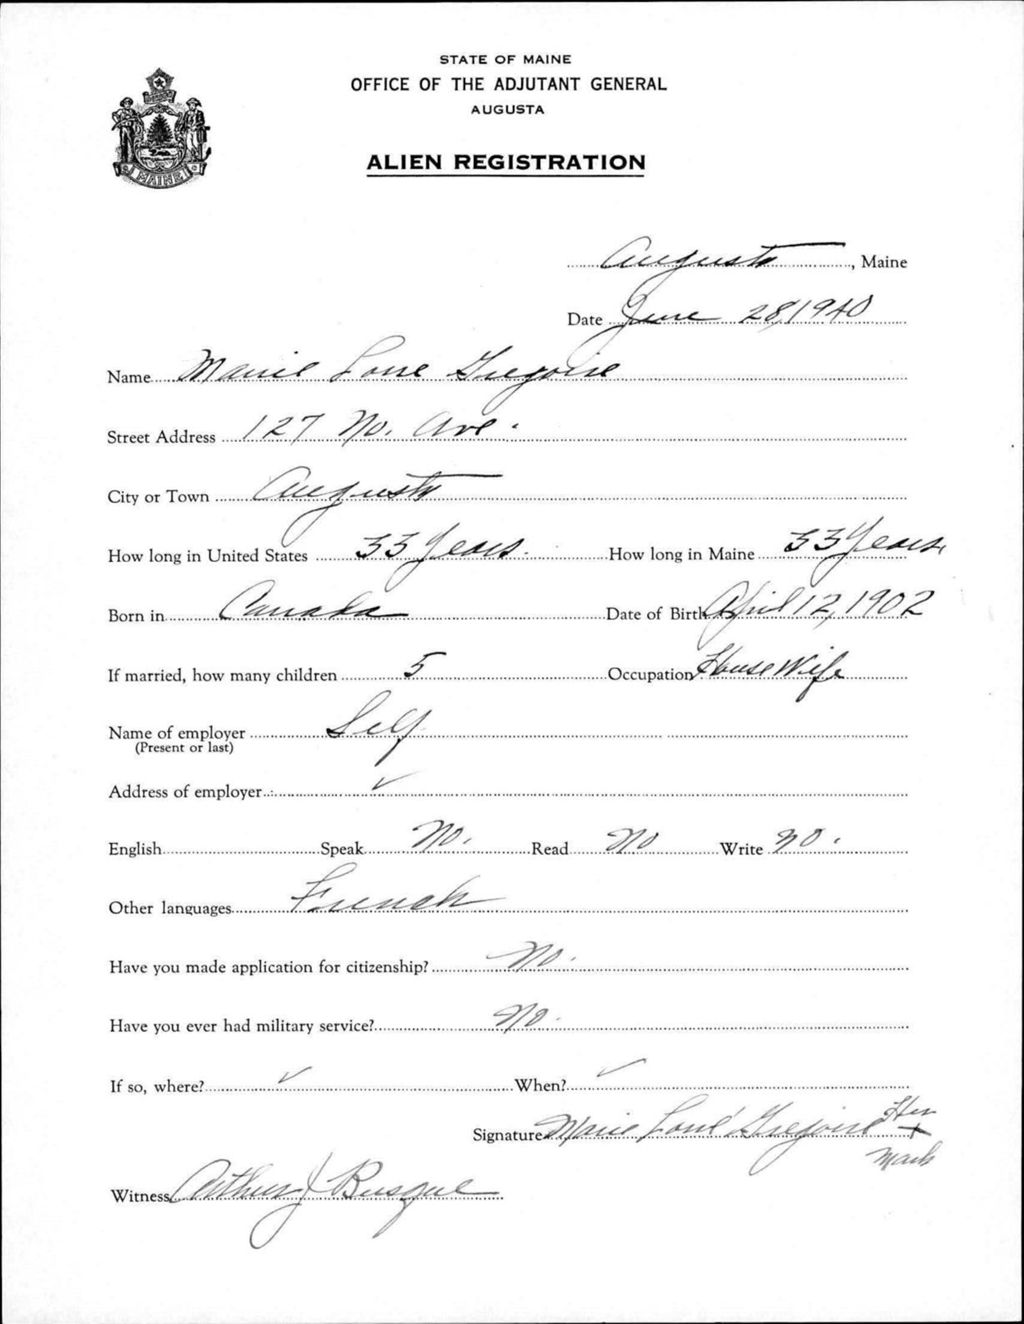 STATE OF MAINE
OFFICE OF THE ADJUTANT GENERAL
AUGUSTA
MAINE
ALIEN REGISTRATION
Augusta, Maine
Date June 28, 1940
Name Marie Gregoire
Street Address 127 No. Ave.
City or Town Augusta
How long in United States 33 Years. How long in Maine 33 Years
Born in Canada Date of Birth April 12, 1902
If married, how many children 5 Occupation House Wife
Name of employer Self
(Present or last)
Address of employer ✓
English Speak No. Read No Write no.
Other languages French
Have you made application for citizenship? No.
Have you ever had military service? No.
If so, where? ✓ When? ✓
Signature Marie Gregoire Her
X
Mark
Witness Arthur J Busque